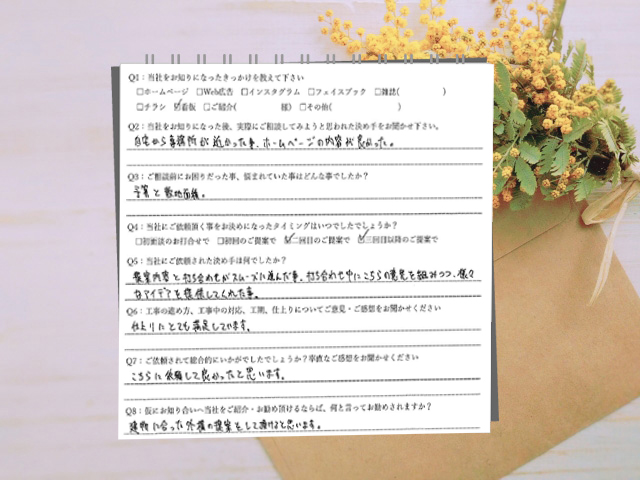 Q1：当社をお知りになったきっかけを教えて下さい
□ホームページ □Web広告 □インスタグラム □フェイスブック □雑誌( )
□チラシ ☑看板 □ご紹介( 様) □その他( )
Q2：当社をお知りになった後、実際にご相談してみようと思われた決め手をお聞かせ下さい。
自宅から事務所が近かった事、ホームページの内容が良かった。
Q3：ご相談前にお困りだった事、悩まれていた事はどんな事でしたか？
予算と敷地面積。
Q4：当社にご依頼頂く事をお決めになったタイミングはいつでしたでしょうか？
□初面談のお打合せで □初回のご提案で ☑二回目のご提案で ☑三回目以降のご提案で
Q5：当社にご依頼された決め手は何でしたか？
提案内容と打ち合わせがスムーズに進んだ事、打ち合わせ中にこちらの意見を組みつつ、様々
なアイデアを提供してくれた事。
Q6：工事の進め方、工事中の対応、工期、仕上りについてご意見・ご感想をお聞かせください
仕上りにとても満足しています。
Q7：ご依頼されて総合的にいかがでしたでしょうか？率直なご感想をお聞かせください
こちらに依頼して良かったと思います。
Q8：仮にお知り合いへ当社をご紹介・お勧め頂けるならば、何と言ってお勧めされますか？
建物に合った外構の提案をして頂けると思います。